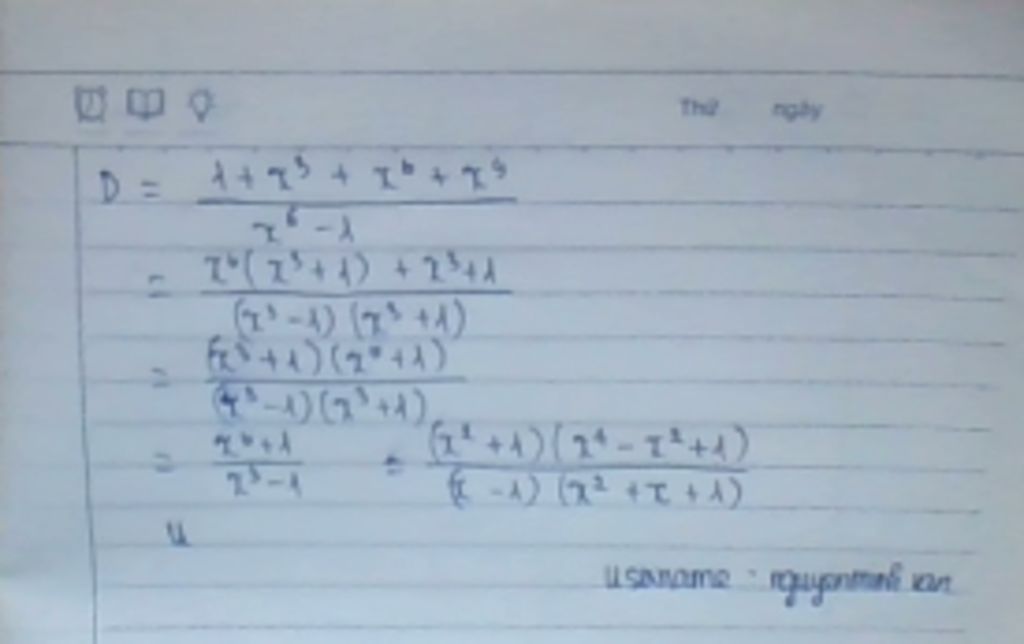 Thứ ngày
D = (1 + x³ + x⁶ + x⁹) / (x⁶ - 1)
= (x⁶(x³ + 1) + x³ + 1) / ((x³ - 1)(x³ + 1))
= ((x³ + 1)(x⁶ + 1)) / ((x³ - 1)(x³ + 1))
= (x⁶ + 1) / (x³ - 1) = ((x² + 1)(x⁴ - x² + 1)) / ((x - 1)(x² + x + 1))
username :